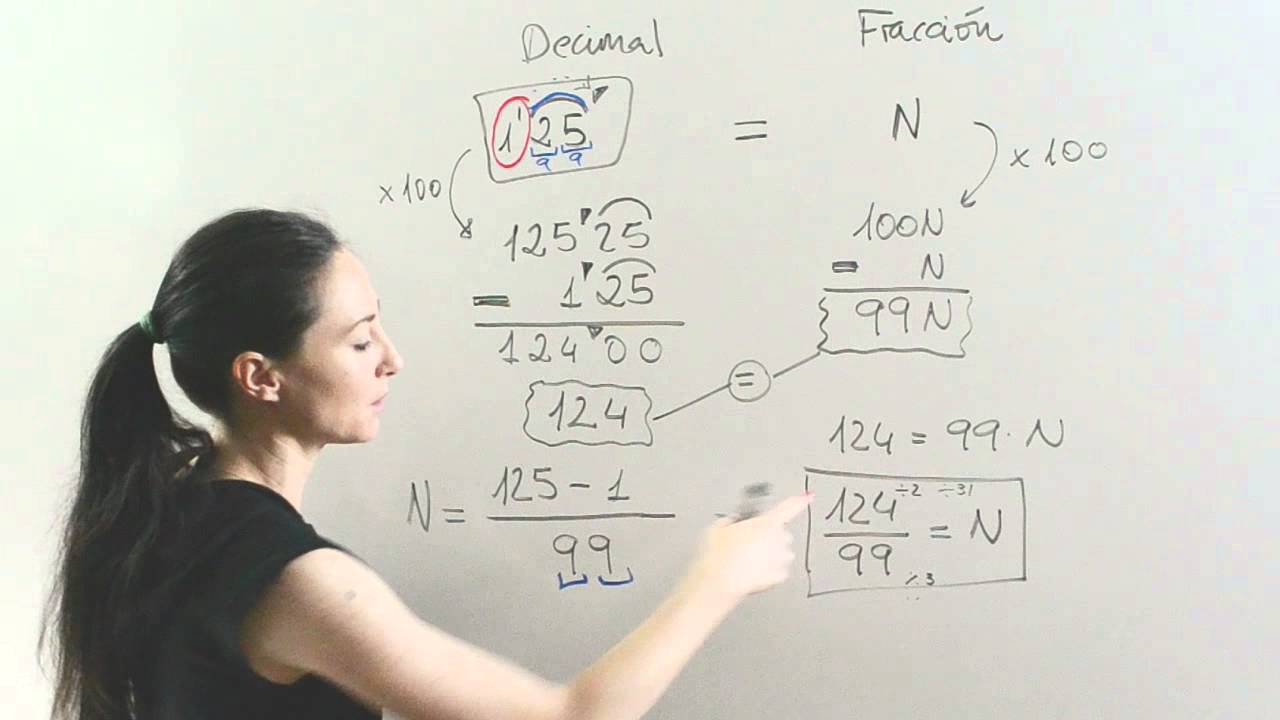 Decimal Fracción
1'25 = N
9 9
x100 x100
125'25 100N
- 1'25 - N
124'00 99N
124 = 124 = 99·N
N = 125-1 / 99 124 ÷2 ÷31 / 99 ÷3 = N